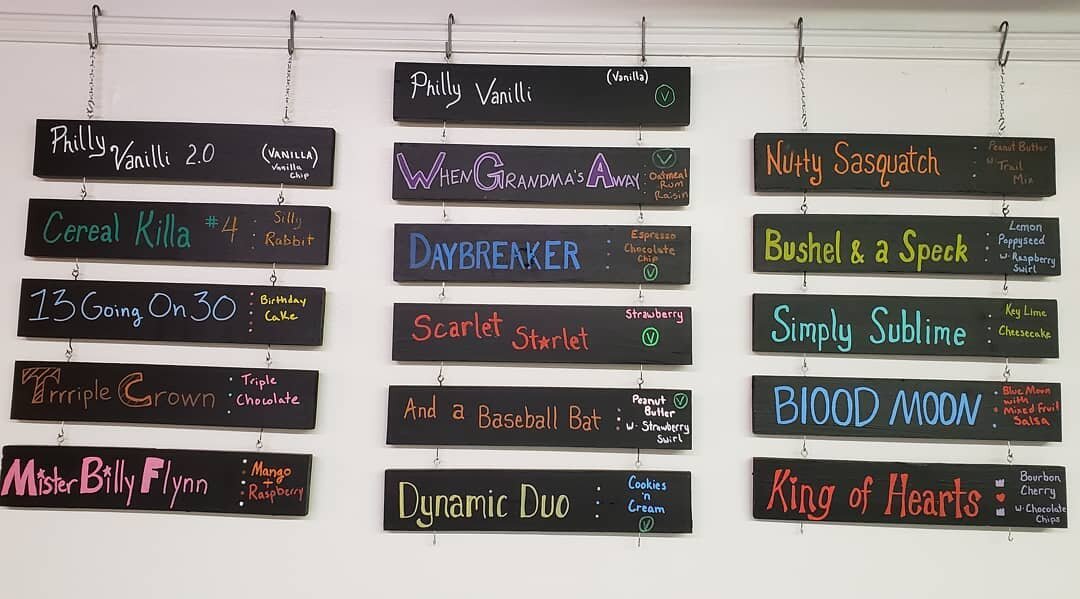 Philly Vanilli 2.0
(VANILLA)
Vanilla
Chip
Cereal Killa #4
Silly
Rabbit
13 Going On 30
Birthday
Cake
Trrriple Crown
Triple
Chocolate
Mister Billy Flynn
Mango
+
Raspberry
Philly Vanilli
(Vanilla)
V
WHEN GRANDMA'S AWAY
V
Oatmeal
Rum
Raisin
DAYBREAKER
Espresso
Chocolate
Chip
V
Scarlet St★rlet
Strawberry
V
And a Baseball Bat
Peanut V
Butter
w. Strawberry
Swirl
Dynamic Duo
Cookies
'n
Cream
V
Nutty Sasquatch
Peanut Butter
w. Trail
Mix
Bushel & a Speck
Lemon
Poppyseed
w. Raspberry
Swirl
Simply Sublime
Key Lime
Cheesecake
BlOOD MOON
Blue Moon
with
Mixed Fruit
Salsa
King of Hearts
Bourbon
Cherry
w. Chocolate
Chips